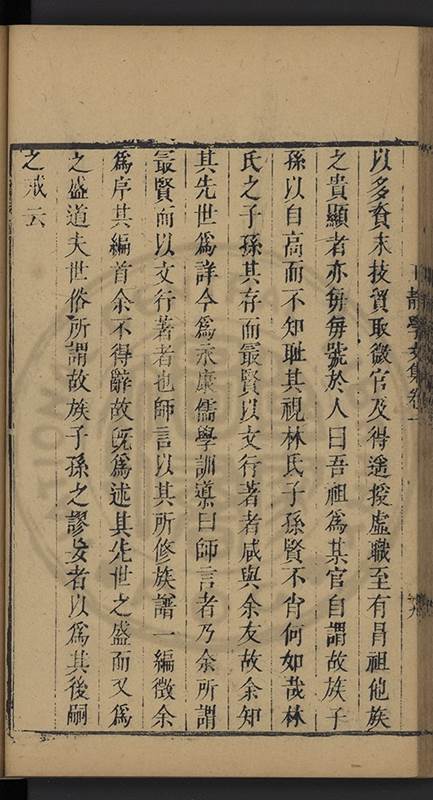 以多貲末技貿取徽官及得遥授虛職至有冒祖他族
之貴顯者亦每每號於人曰吾祖爲某官自謂故族子
孫以自高而不知耻其視林氏子孫賢不肖何如哉林
氏之子孫其存而最賢以文行著者咸與余友故余知
其先世爲詳今爲永康儒學訓導曰師言者乃余所謂
最賢而以文行著者也師言以其所修族譜一編徵余
爲序其編首余不得辭故旣爲述其先世之盛而又爲
之盛道夫世俗所謂故族子孫之謬妄者以爲其後嗣
之戒云
靜學文集卷一